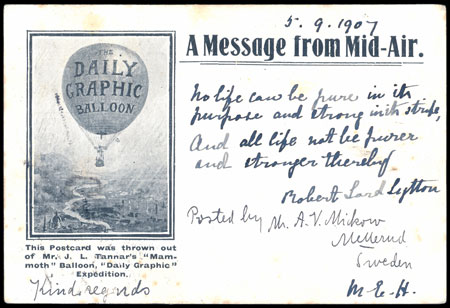 5.9.1907
A Message from Mid-Air.
THE
DAILY
GRAPHIC
BALLOON
No life can be pure in its
purpose and strong in its strife,
And all life not be purer
and stronger thereby
Robert Lord Lytton
Posted by Mr. A. V. Mickow
Mellerud
Sweden
M-E-H.
This Postcard was thrown out
of Mr. J. L. Tannar's "Mam-
moth" Balloon, "Daily Graphic"
Expedition.
Kind regards